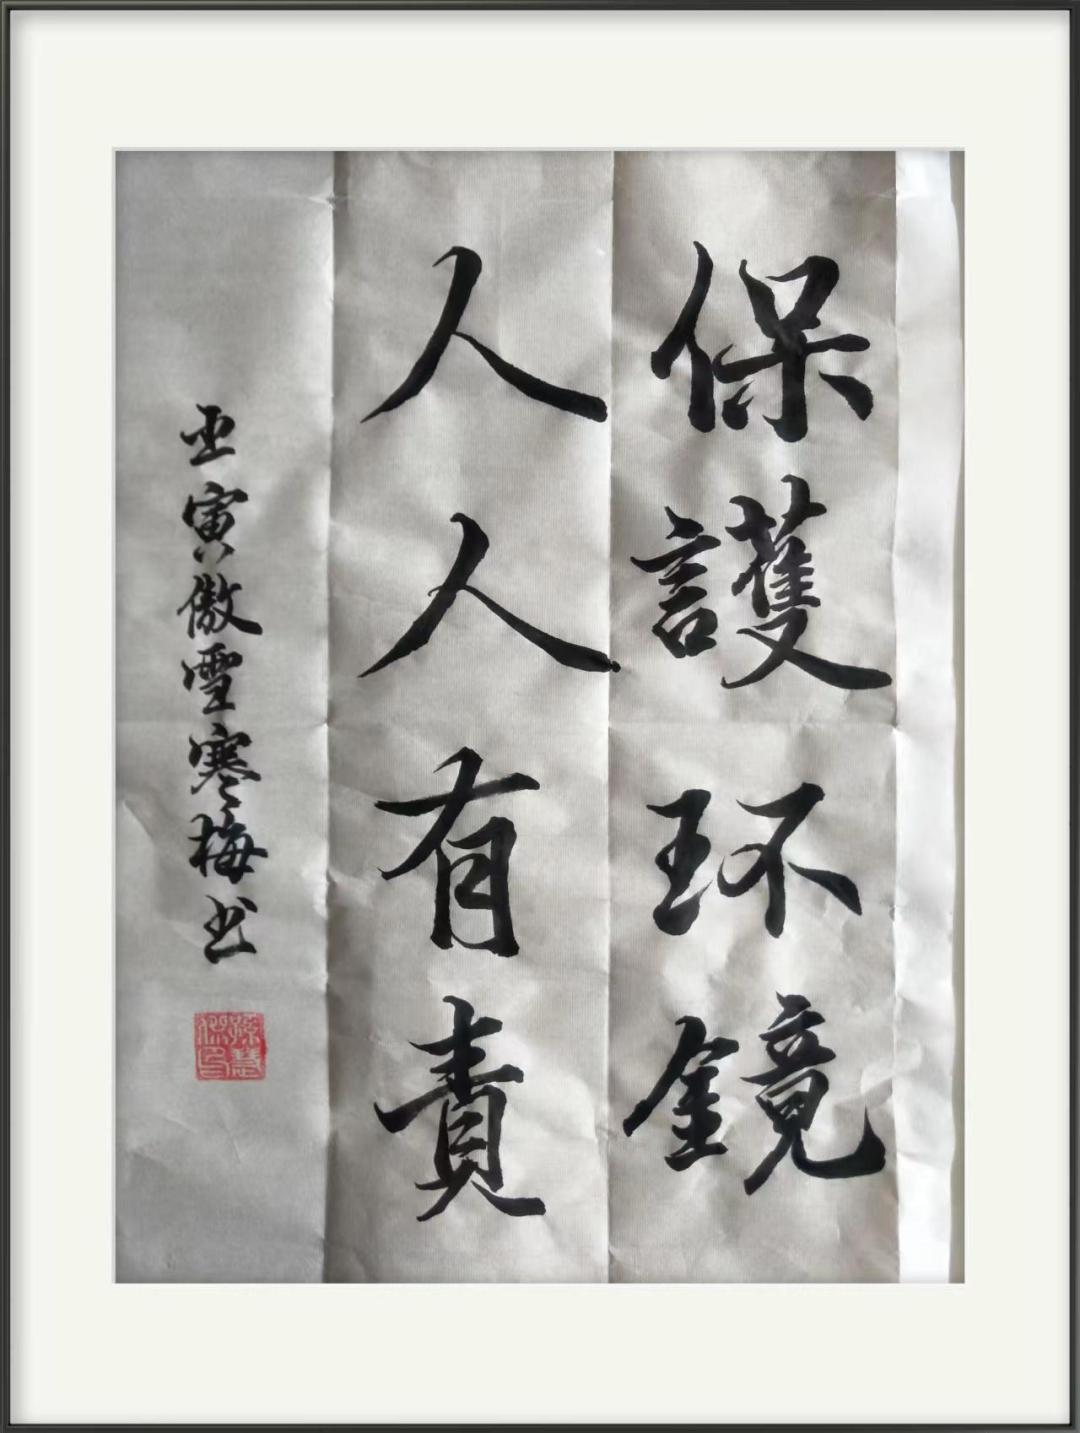 保護环鏡
人人有責
壬寅傲雪寒梅书